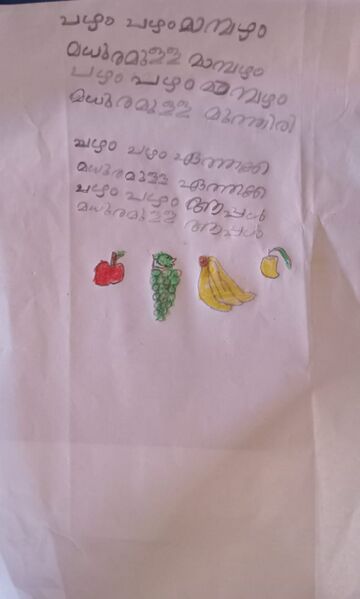 പഴം പഴം മാമ്പഴം
മധുരമുള്ള മാമ്പഴം
പഴം പഴം മാമ്പഴം
മധുരമുള്ള മുന്തിരി
പഴം പഴം ഏത്തക്ക
മധുരമുള്ള ഏത്തക്ക
പഴം പഴം ആപ്പിൾ
മധുരമുള്ള ആപ്പിൾ